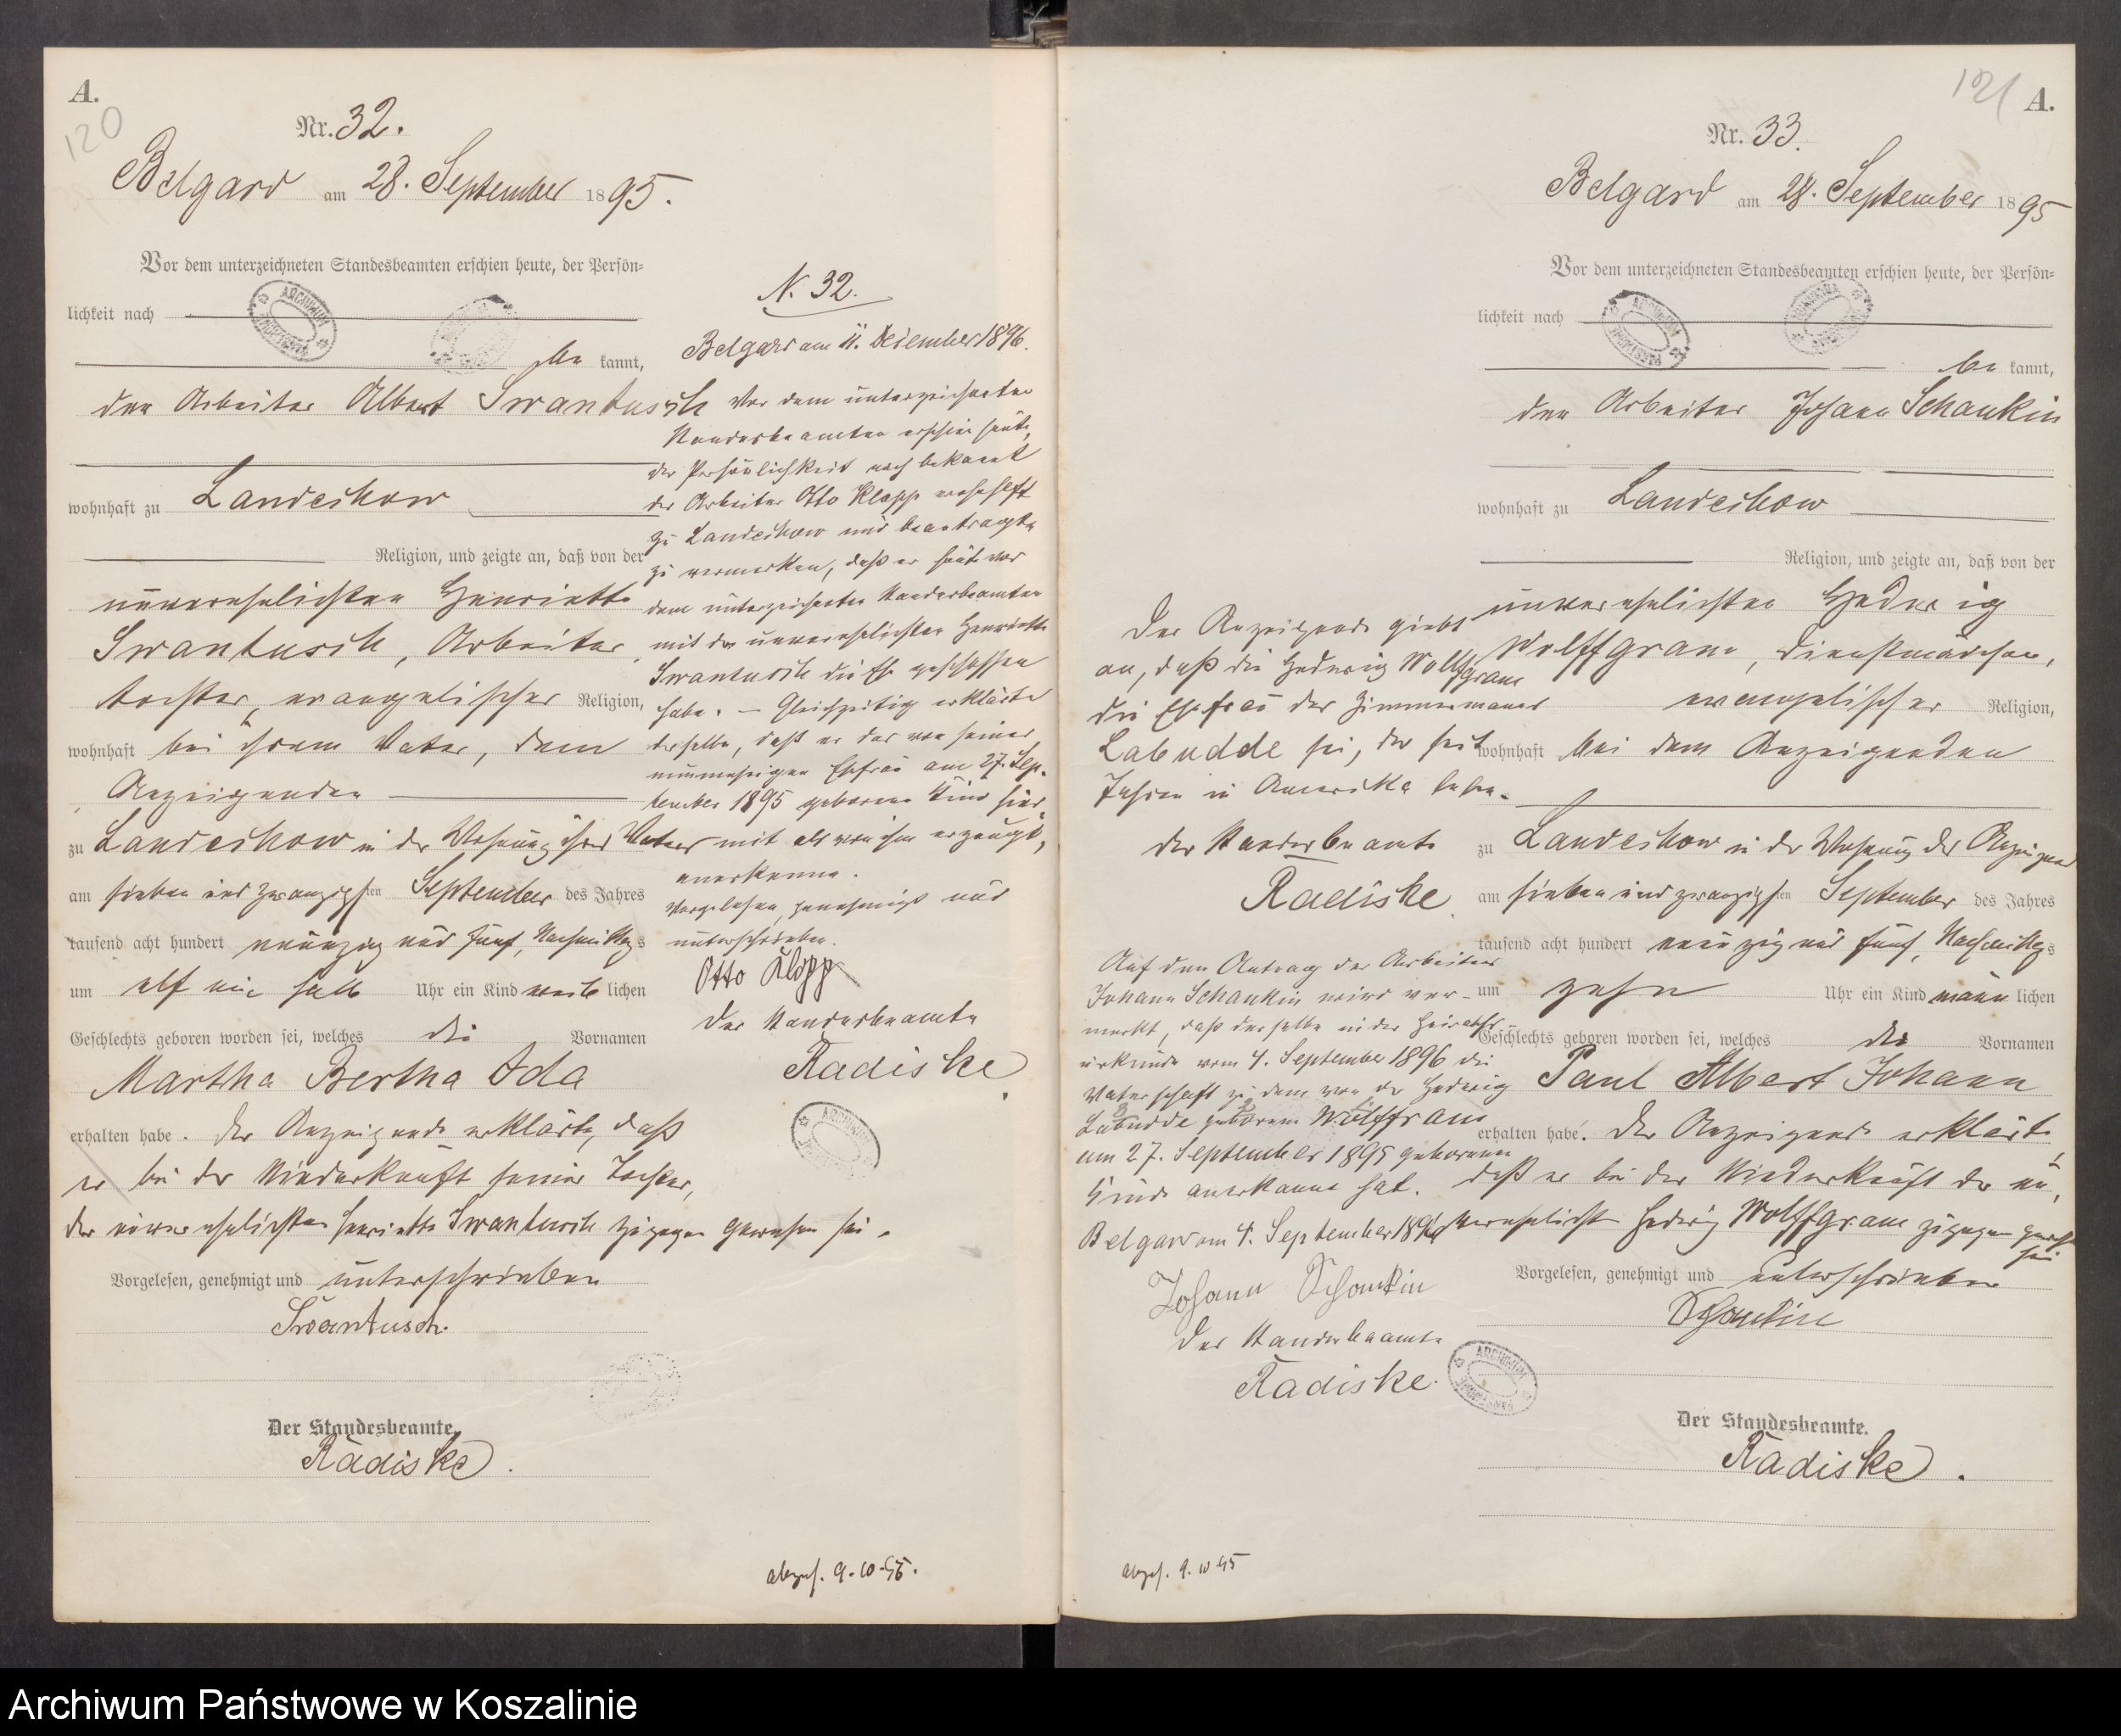 A.
120
Nr. 32.
Belgard am 28. September 1895.
Vor dem unterzeichneten Standesbeamten erschien heute, der Persön=
lichkeit nach
be kannt,
der Arbeiter Albert Swantusch
wohnhaft zu Landechow
Religion, und zeigte an, daß von der
unverehelichten Henriette
Swantusch, Arbeiter
tochter, evangelischer Religion,
wohnhaft bei ihrem Vater, dem
Anzeigenden
zu Landechow in der Wohnung ihres Vaters
am sieben und zwanzigsten September des Jahres
tausend acht hundert neunzig und fünf, Nachmittags
um elf ein halb Uhr ein Kind weiblichen
Geschlechts geboren worden sei, welches die Vornamen
Martha Bertha Ida
erhalten habe. Der Anzeigende erklärte, daß
er bei der Niederkunft seiner Tochter,
der unverehelichten Henriette Swantusch zugegen gewesen sei.
Vorgelesen, genehmigt und unterschrieben
Swantusch.
Der Standesbeamte.
Radiske.
N. 32.
Belgard am 11. Dezember 1896.
Vor dem unterzeichneten
Standesbeamten erschien heute,
der Persönlichkeit nach bekannt
der Arbeiter Otto Klopp wohnhaft
zu Landechow und beantragte
zu vermerken, daß er heute vor
dem unterzeichneten Standesbeamten
mit der unverehelichten Henriette
Swantusch die Ehe geschlossen
habe. — Gleichzeitig erklärte
derselbe, daß er das von seiner
nunmehrigen Ehefrau am 27. Sep-
tember 1895 geborene Kind hier
mit als von ihm erzeugt,
anerkenne.
Vorgelesen, genehmigt und
unterschrieben.
Otto Klopp
Der Standesbeamte
Radiske.
abges. 9.10.95.
121
A.
Nr. 33.
Belgard am 28. September 1895
Vor dem unterzeichneten Standesbeamten erschien heute, der Persön=
lichkeit nach
be kannt,
der Arbeiter Johann Schankin
wohnhaft zu Landechow
Religion, und zeigte an, daß von der
unverehelichten Hedwig
Wolffgram, Dienstmädchen,
evangelischer Religion,
wohnhaft bei dem Anzeigenden
zu Landechow in der Wohnung des Anzeigend
am sieben und zwanzigsten September des Jahres
tausend acht hundert neunzig und fünf, Nachmittags
um zehn Uhr ein Kind männlichen
Geschlechts geboren worden sei, welches die Vornamen
Paul Albert Johann
erhalten habe. Der Anzeigende erklärt,
daß er bei der Niederkunft der un,
verehelichten Hedwig Wolffgram zugegen gewesen
sei
Vorgelesen, genehmigt und unterschrieben
Schankin
Der Standesbeamte.
Radiske.
Der Anzeigende giebt
an, daß die Hedwig Wolffgram
die Ehefrau des Zimmermanns
Labudde sei, der seit
Jahren in Amerika lebe.
Der Standesbeamte
Radiske
Auf den Antrag des Arbeiters
Johann Schankin wird ver-
merkt, daß derselbe in der Heiraths-
urkunde vom 4. September 1896 die
Vaterschaft zu dem von der Hedwig
Labudde geborene Wolffram
am 27. September 1895 geborenen
Kinde anerkannt hat.
Belgard am 4. September 1896
Johann Schankin
Der Standesbeamte
Radiske.
abges. 9.10.95
Archiwum Państwowe w Koszalinie